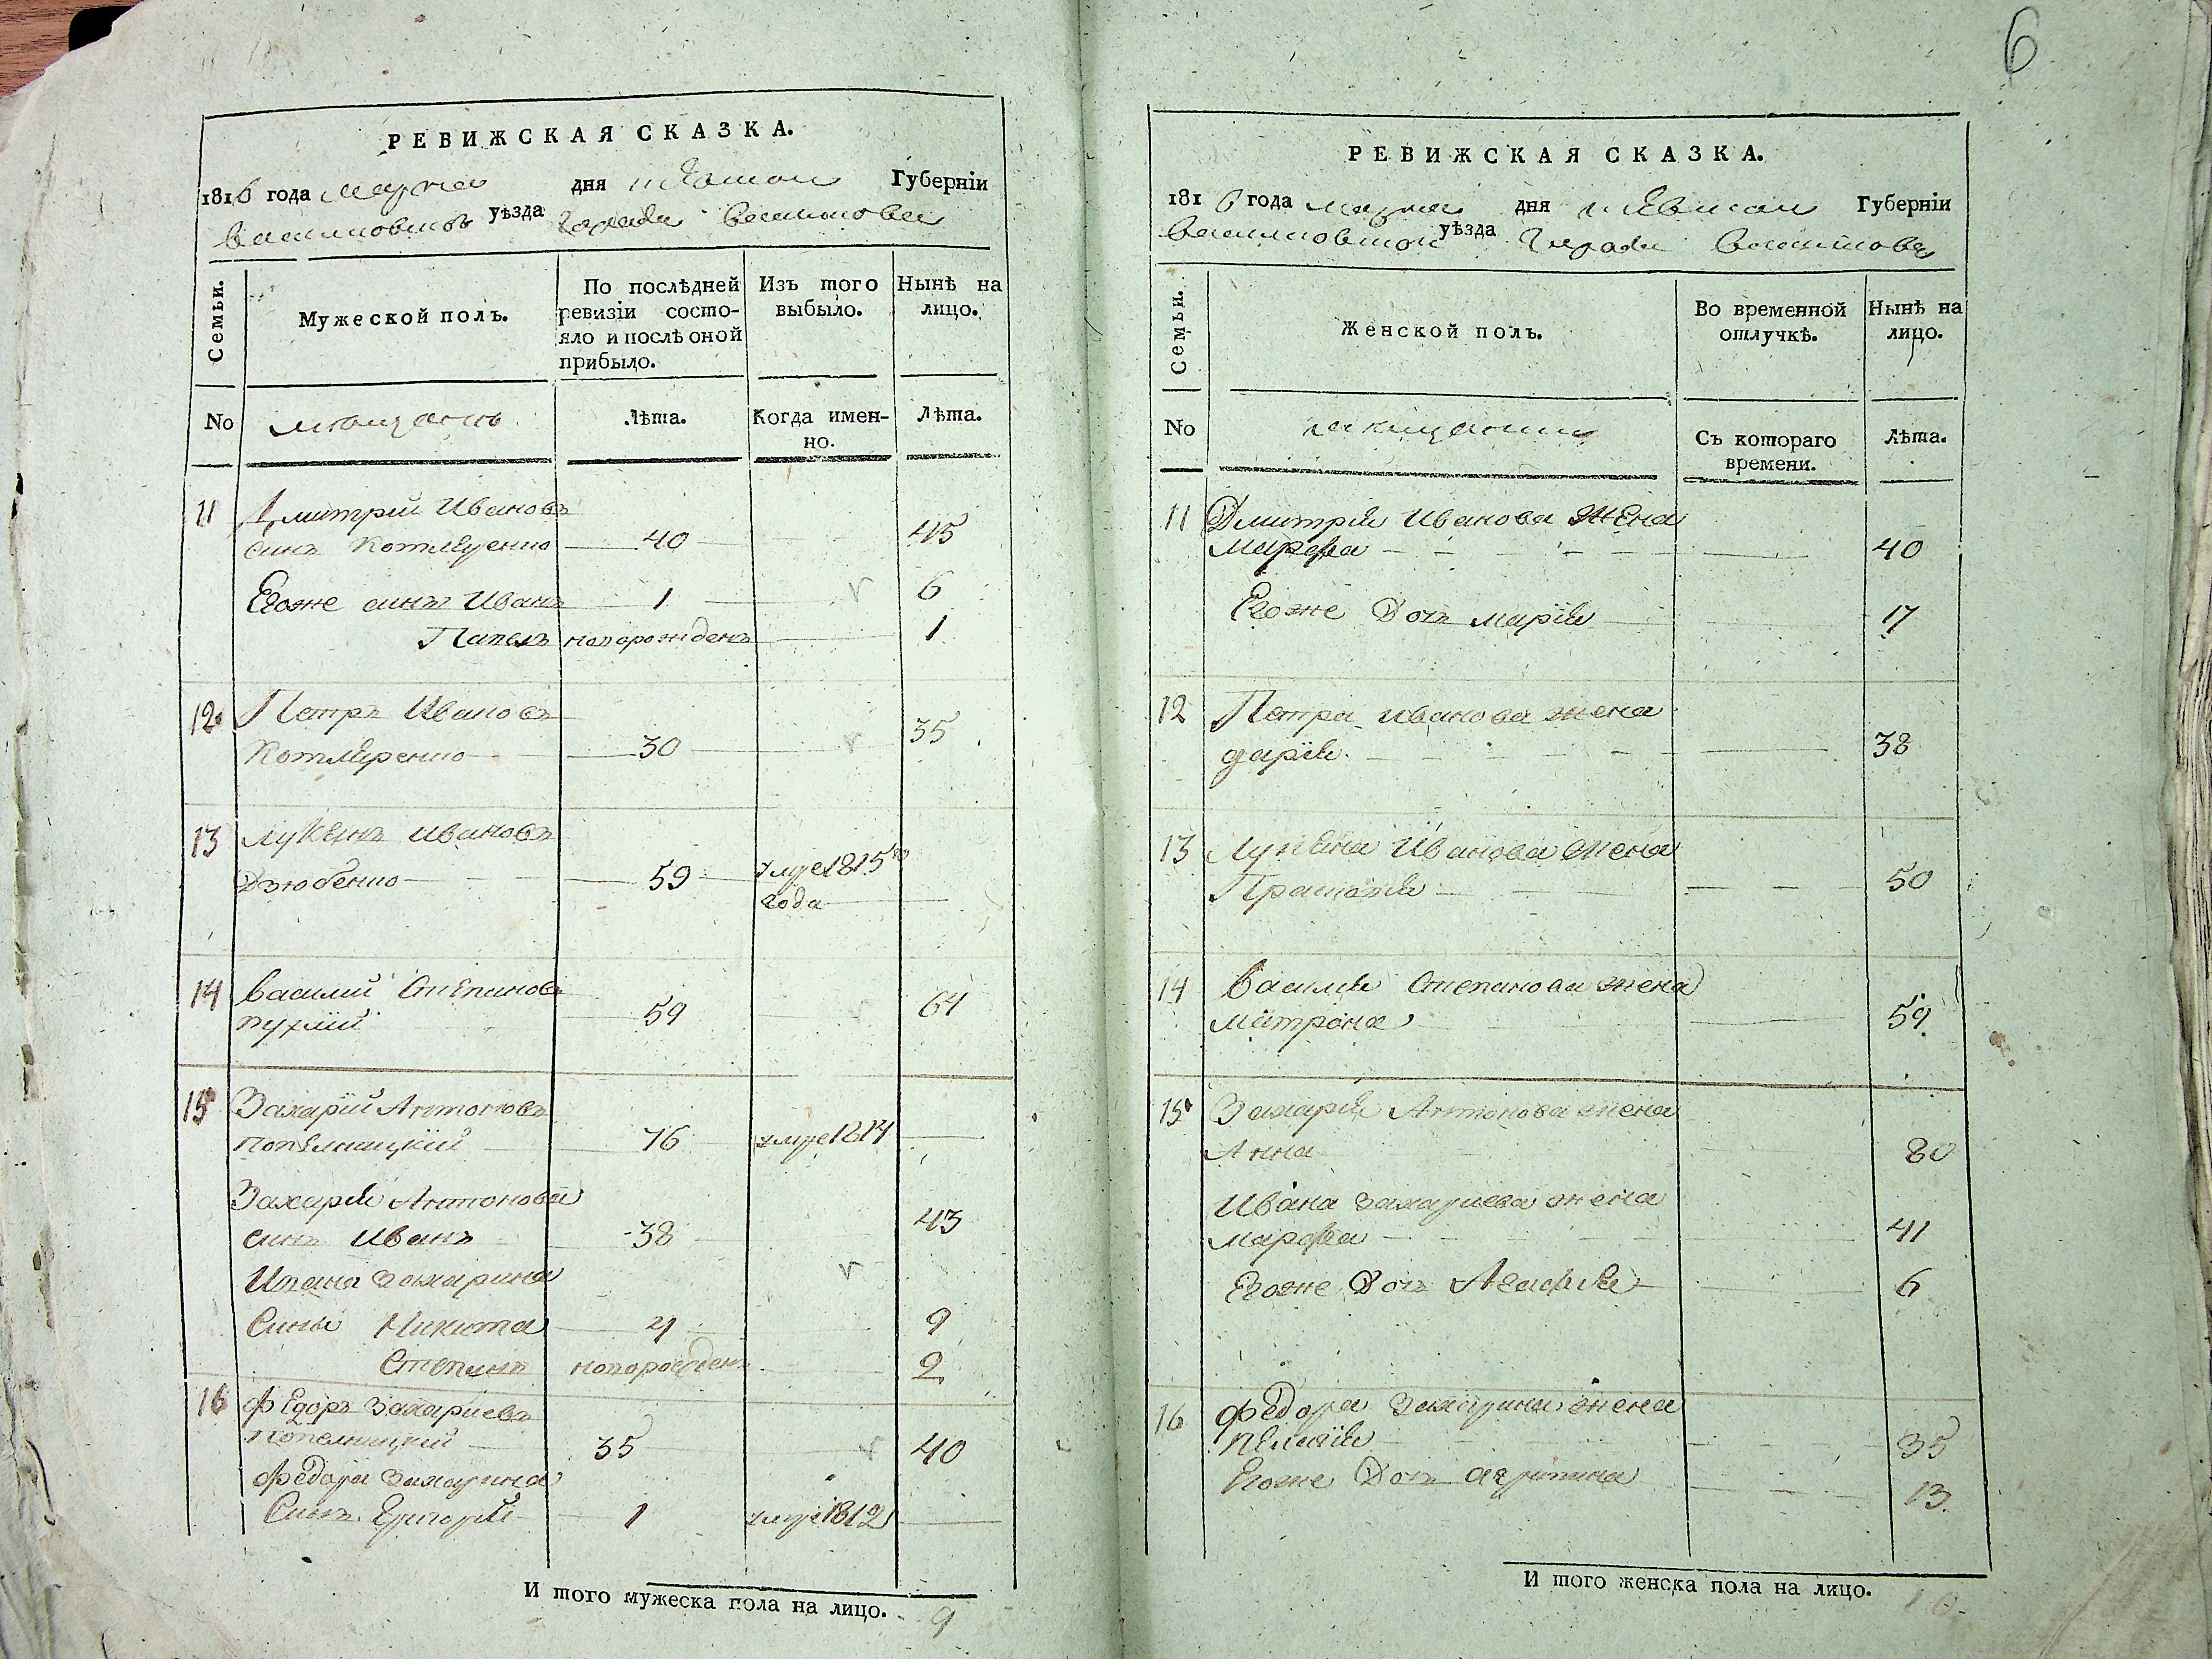 6
РЕВИЖСКАЯ СКАЗКА.
1816 года марта дня Киевской Губерніи
Васильковского уѣзда Города Василькова
Семьи.
Мужеской полъ.
По послѣдней ревизіи состо-
яло и послѣ оной
прибыло.
Изъ того
выбыло.
Нынѣ на
лицо.
No
мещанъ
Лѣта.
Когда имен-
но.
Лѣта.
11 Дмитрий Ивановъ
синъ Котляренко 40 45
Егоже синъ Иванъ 1 6
Павелъ новорожденъ 1
12 Петръ Ивановъ
Котляренко 30 35
13 Лукянъ Ивановъ
Дзюбенко 59 умре 1815го
года
14 Василий Степановъ
пухлий 59 64
15 Захарїй Антоновъ
попелницкий 76 умре 1814
Захарія Антонова
синъ Иванъ 38 43
Ивана Захарина
Сины Никита 4 9
Степанъ новорожденъ 2
16 Федоръ Захариевъ
попелницкий 35 40
Федора Захарина
Синъ Григорій 1 умре 1812
И того мужеска пола на лицо. 9
РЕВИЖСКАЯ СКАЗКА.
1816 года марта дня Киевской Губерніи
Васильковской уѣзда Города Василькова
Семьи.
Женской полъ.
Во временной
отлучкѣ.
Нынѣ на
лицо.
No
Съ котораго
времени.
Лѣта.
11 Дмитрія Иванова жена
Марфа 40
Егоже Дочь марїя 17
12 Петра иванова жена
дарїя 38
13 Лукяна Иванова жена
50
14 Василия Степанова жена
Матрона 59
15 Захарія Антонова жена
Анна 80
Ивана захариева жена
марфа 41
Егоже Дочь Агафія 6
16 Федора Захарина жена
35
Егоже Дочь агрипина 13
И того женска пола на лицо. 10